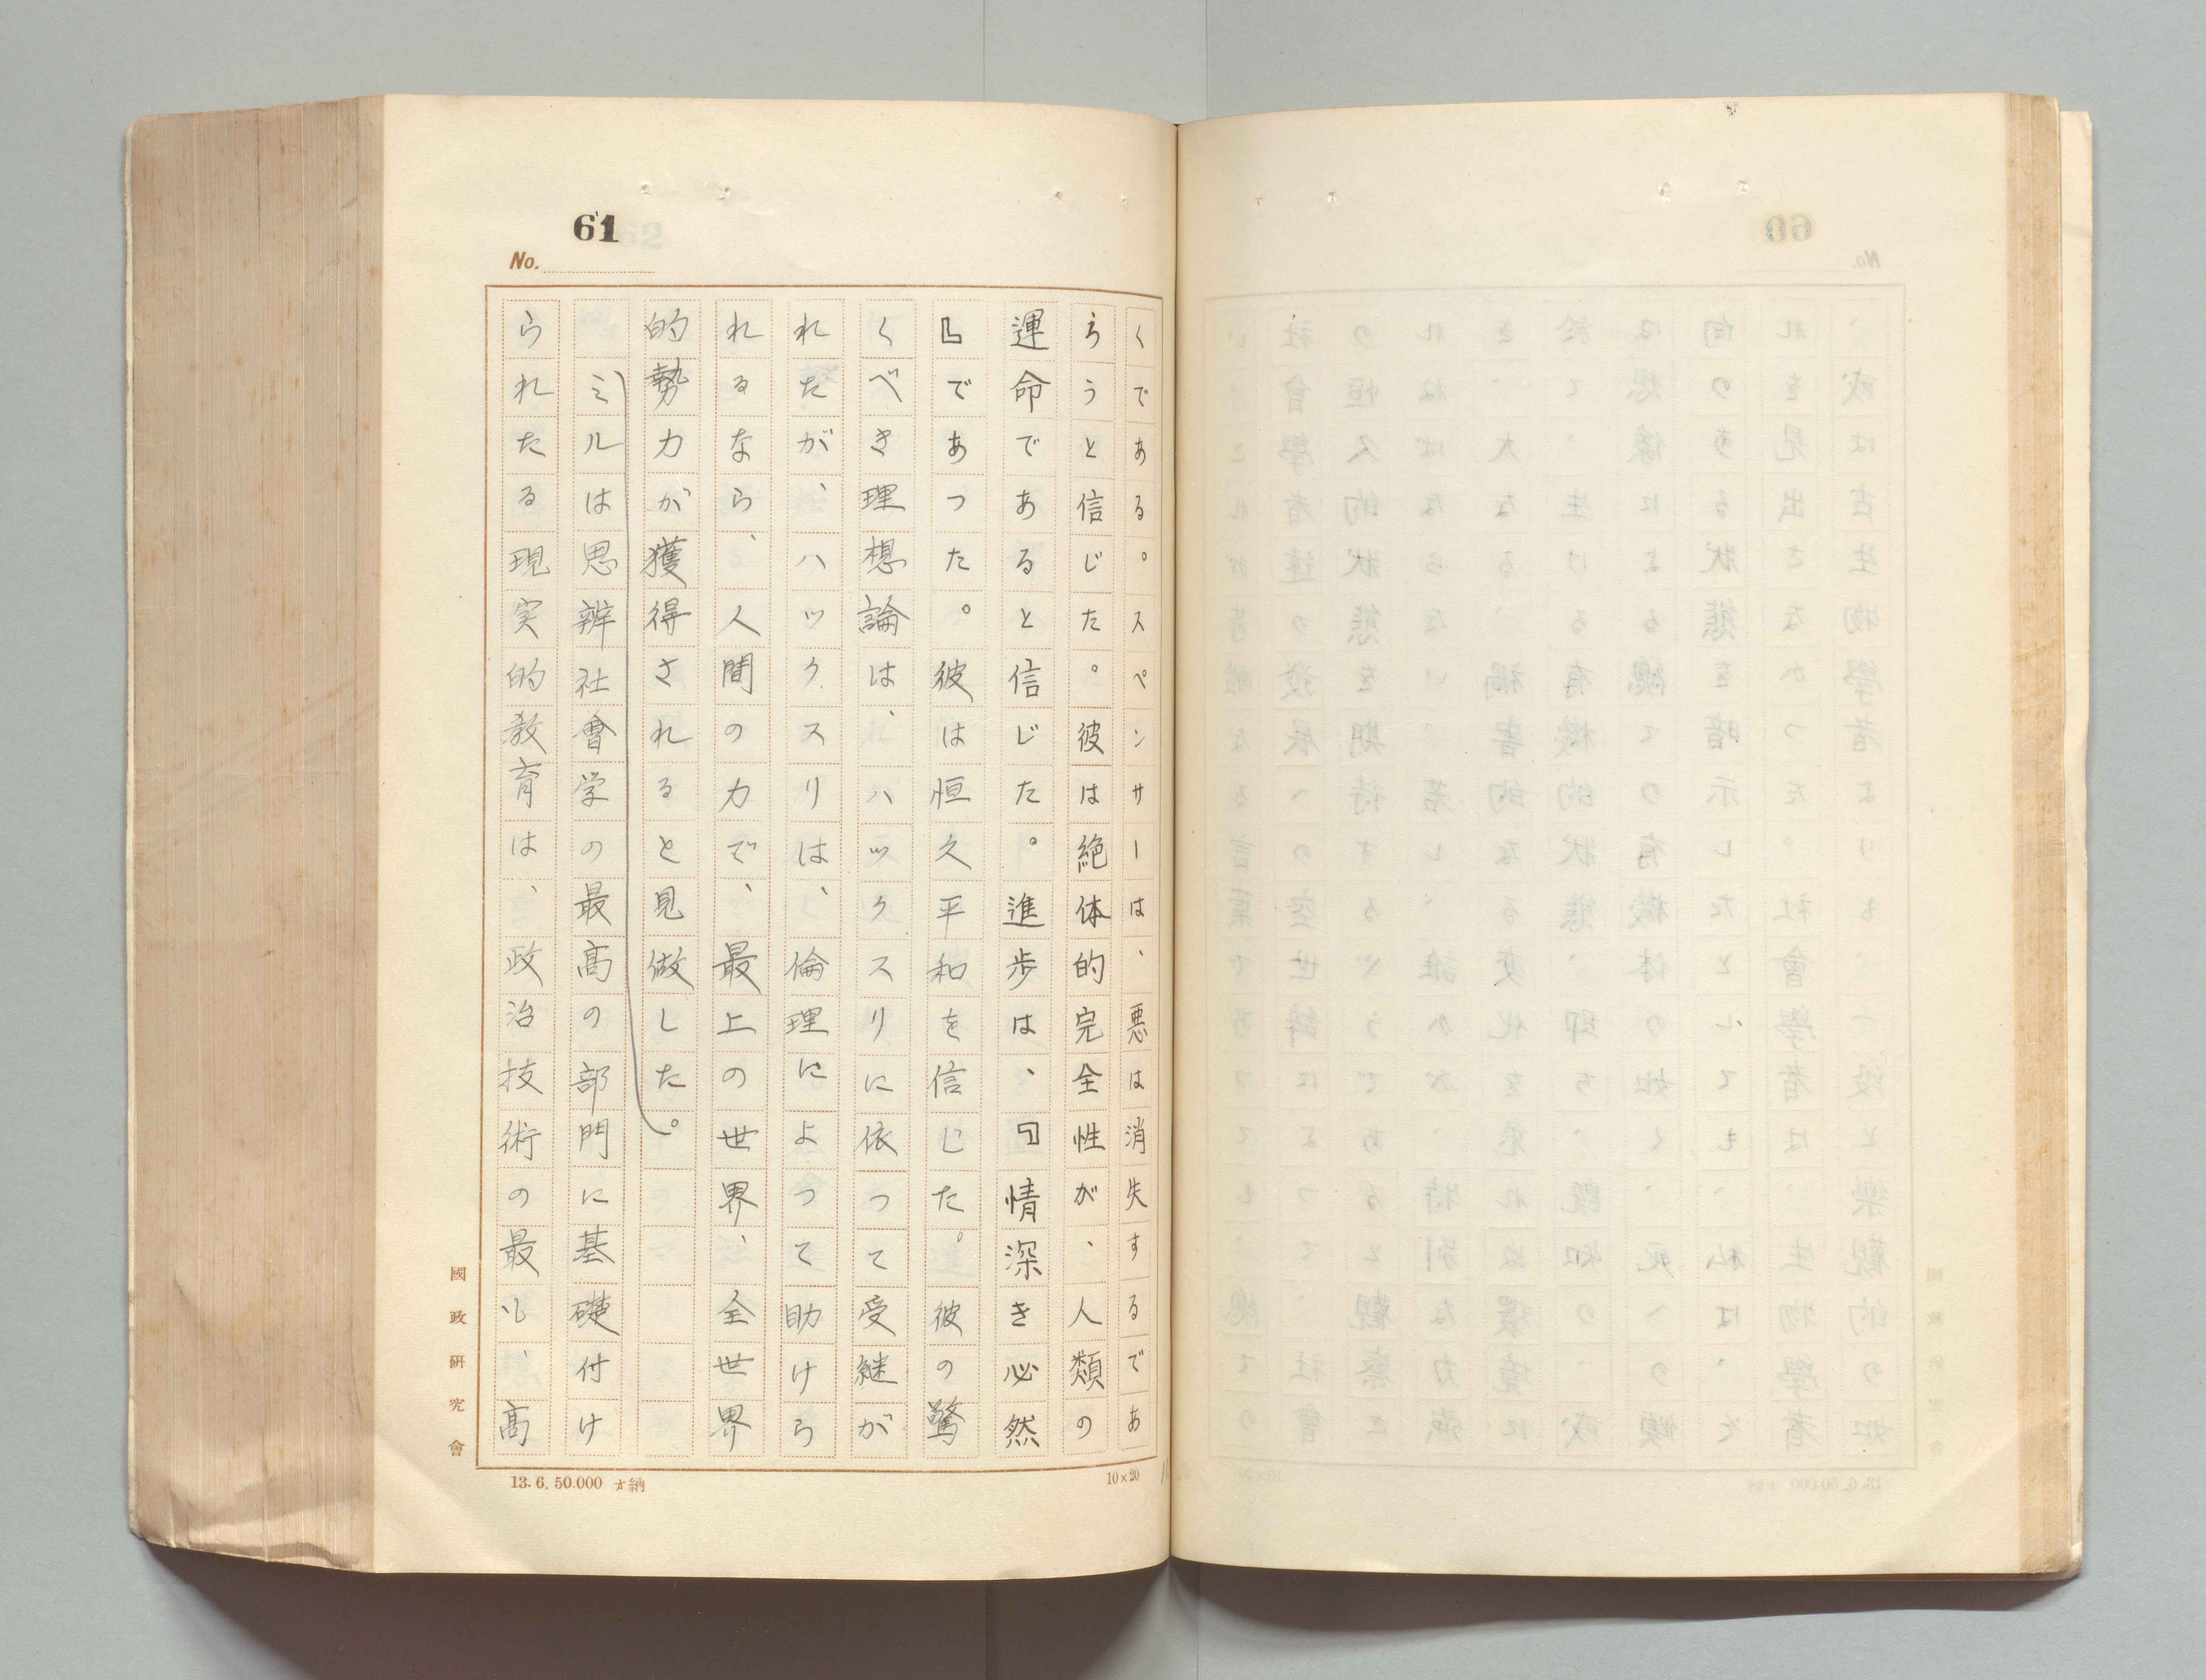 61
No.
くである。スペンサーは、悪は消失するであ
らうと信じた。彼は絶体的完全性が、人類の
運命であると信じた。進歩は、『情深き必然
』であつた。彼は恒久平和を信じた。彼の驚
くべき理想論は、ハックスリに依つて受継が
れたが、ハックスリは、倫理によつて助けら
れるなら、人間の力で、最上の世界、全世界
的勢力が獲得されると見做した。
ミルは思辨社會学の最高の部門に基礎付け
られたる現実的教育は、政治技術の最も、高
國政研究會
10×20
13.6.50.000 納